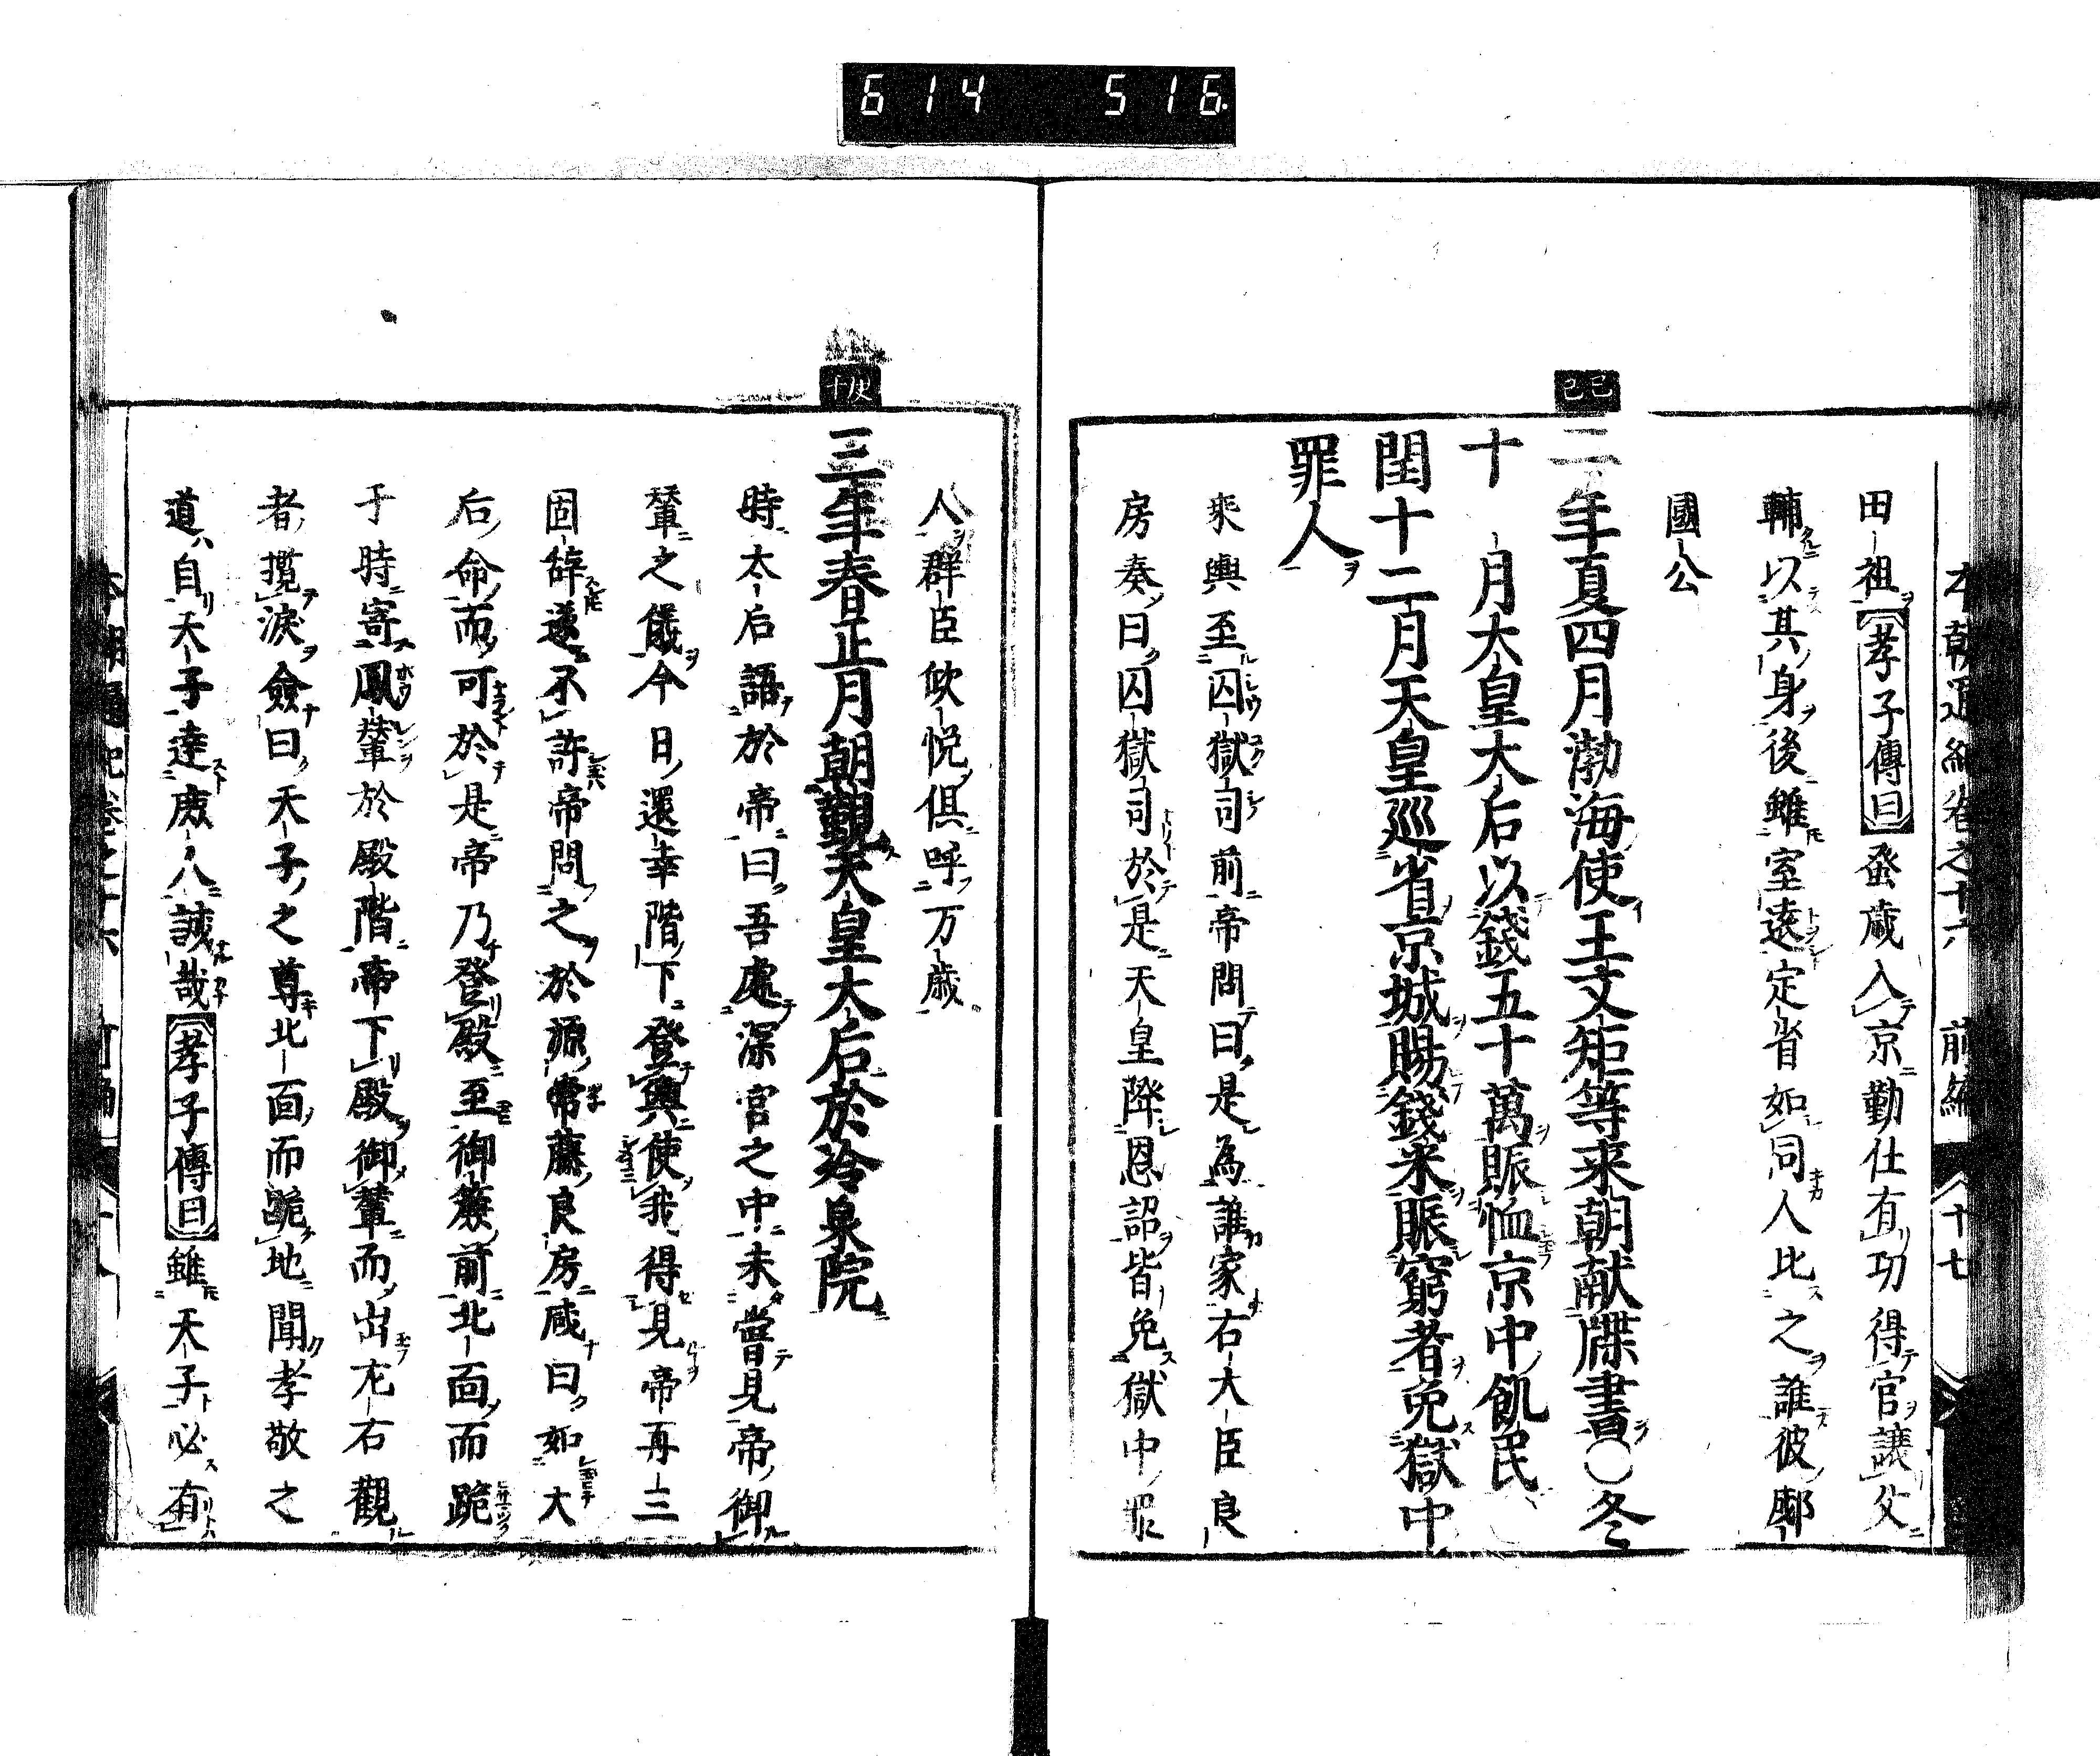 614 516
本朝通紀卷之十六 前編 十七
田祖孝子傳曰蚤歲入京勤仕有功得官讓父
輔以其身後雖室遠定省如同人比之誰彼鄅
國公
己巳
二年夏四月渤海使王文矩等来朝献牒書○冬
十月太皇大后以錢五十萬賑恤京中飢民
閏十二月天皇巡省京城賜錢米賑窮者免獄中
罪人
乘輿至囚獄司前帝問曰是為誰家右大臣良
房奏曰囚獄司於是天皇降恩詔皆免獄中罪
人群臣欣悦俱呼万歲
庚午
三年春正月朝覲天皇大后於冷泉院
時太后語於帝曰吾處深宮之中未嘗見帝御
輦之儀今日還幸階下登輿使我得見帝再三
固辞遜不許帝問之於源常藤良房咸曰如大
后命而可於是帝乃登殿至御簾前北面而跪
于時寄鳳輦於殿階帝下殿御輦而出左右觀
者攬淚僉曰天子之尊北面而跪地聞孝敬之
道自天子達庶人誠哉孝子傳曰雖天子必有